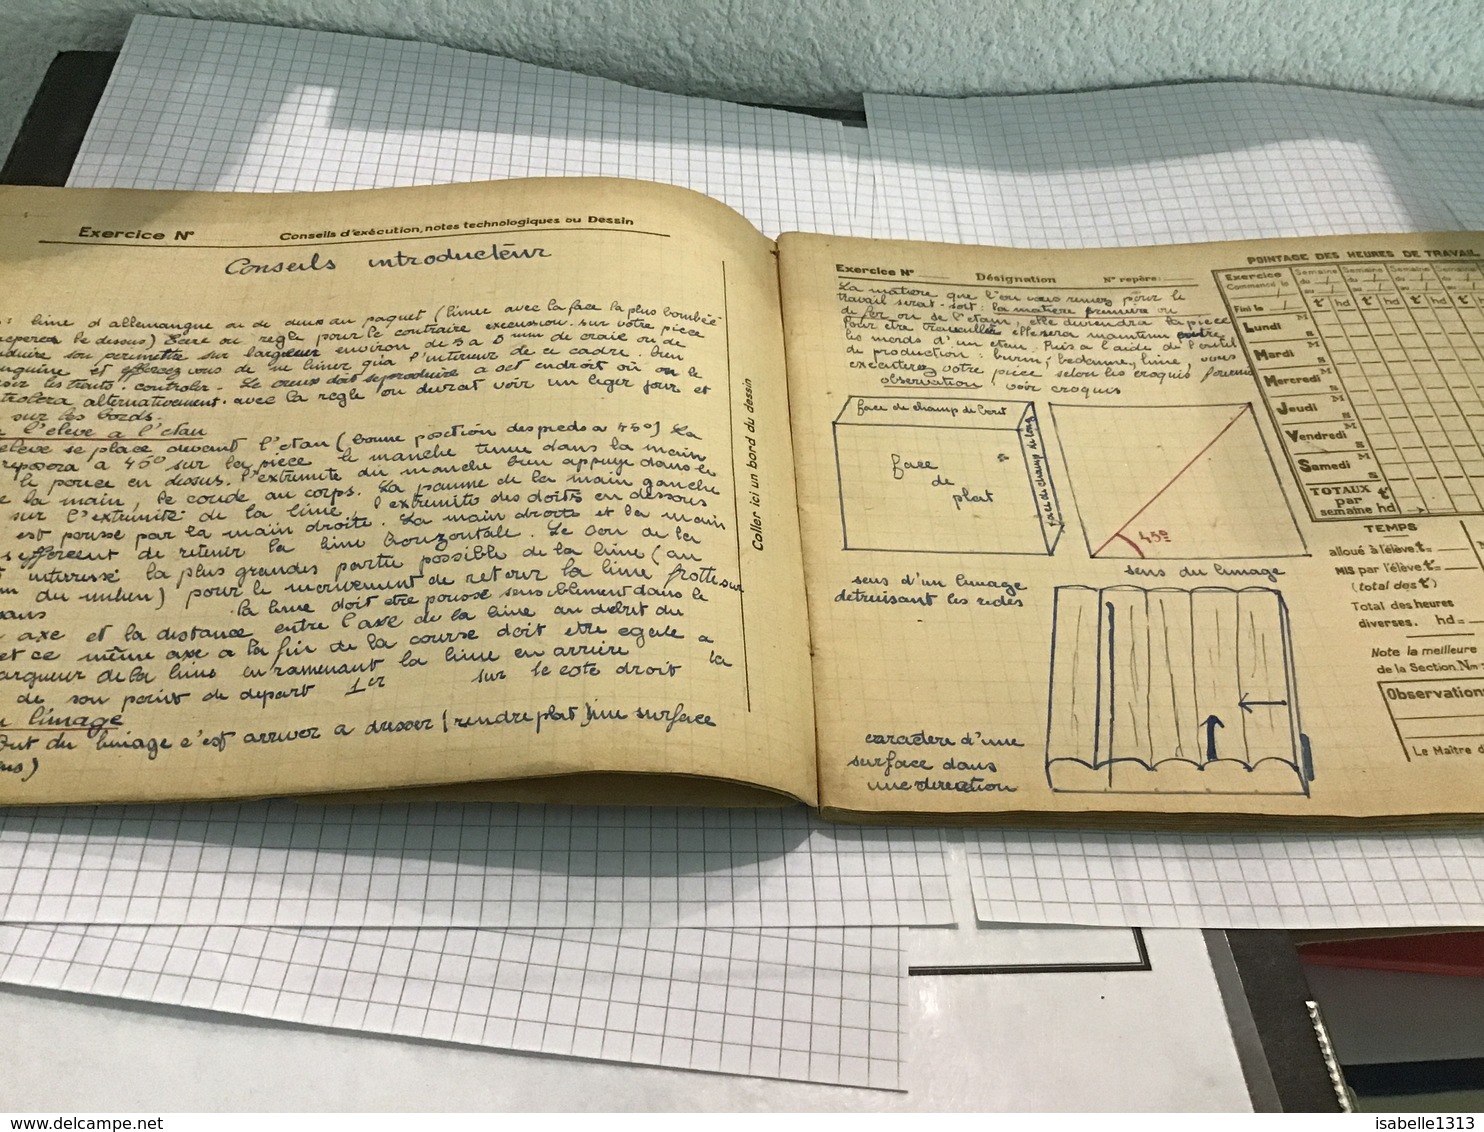 Exercice N°
Conseils d'exécution, notes technologiques ou Dessin
Conseils introducteur
: lime d allemangne ou de deux au paquet (lime avec la face la plus bombée
le dessous) ou regle pour le contraire excecusion. sur votre piece
son permettre sur largeur environ de 3 a 5 mm de craie ou de
et efforcez vous de ne limer qu'a l'interieur de ce cadre. bien
les traits. controler. Le creux doit se produire a cet endroit où on le
alternativement. avec la regle ou durat voir un leger jour et
sur les bords.
l'eleve a l'etau
eleve se place devant l'etau (bonne position des pieds a 45°) La
reposera a 45° sur la piece le manche tenue dans la main
le pouce en dessus. l'extremite du manche bien appuye dans le
la main, le coude au corps. La paume de la main gauche
sur l'extrimité de la lime, l'extremite des doits en dessous
est poussé par la main droite. La main droite et la main
s efforcent de retenir la lime horizontale. Le bon de la
interressé la plus grandes partie possible de la lime (au
du milieu) pour le mouvement de retour la lime frotte sur
sans la lime doit etre poussé sensiblement dans le
axe et la distance entre l'axe de la lime au debut du
et ce même axe a la fin de la course doit etre egale a
largueur de la lime en ramenant la lime en arriere la
de son point de depart 1er sur le coté droit
limage
But du limage c'est arriver a dresser (rendre plat) une surface
Coller ici un bord du dessin
Exercice N° Désignation N° repère:
La matiere que l'on vous remez pour le
travail serat-soit: la matiere premiere ou
de fer ou se l'etain, elle deviendra la piece
Pour etre travaillée elle sera maintenu entre
les mords d'un etau. Puis a l'aide de l'outil
de production: burin, bedanne, lime, vous
executerez votre piece selon les croquis fournis
observation, voir croquis
face de champ de bout
face
de
plat
face de champ de long
45°
sens du limage
sens d'un limage
detruisant les rides
caractere d'une
surface dans
une direction
POINTAGE DES HEURES DE TRAVAIL
Exercice
Commencé le
Fini le
Semaine du au
Semaine du au
Semaine du au
Semaine du au
t hd t hd t hd t
Lundi M S
Mardi M S
Mercredi M S
Jeudi M S
Vendredi M S
Samedi M S
TOTAUX t
par
semaine hd
TEMPS
alloué à l'élève t=
MIS par l'élève t=
(total des t)
Total des heures
diverses. hd=
Note la meilleure
de la Section. Nm
Observation
Le Maître d
isabelle1313
delcampe.net